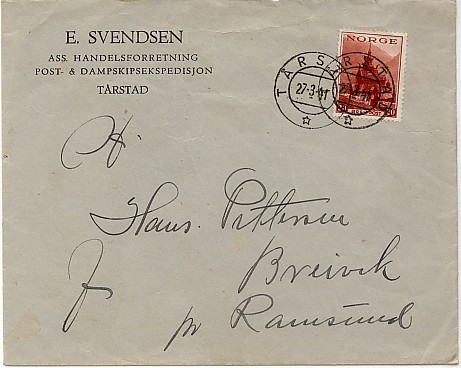 E. SVENDSEN
ASS. HANDELSFORRETNING
POST- & DAMPSKIPSEKSPEDISJON
TÅRSTAD
NORGE
20
TÅRSTAD
27-3-41
Hr.
Hans. Pettersen
Breivik
pr Ramsund